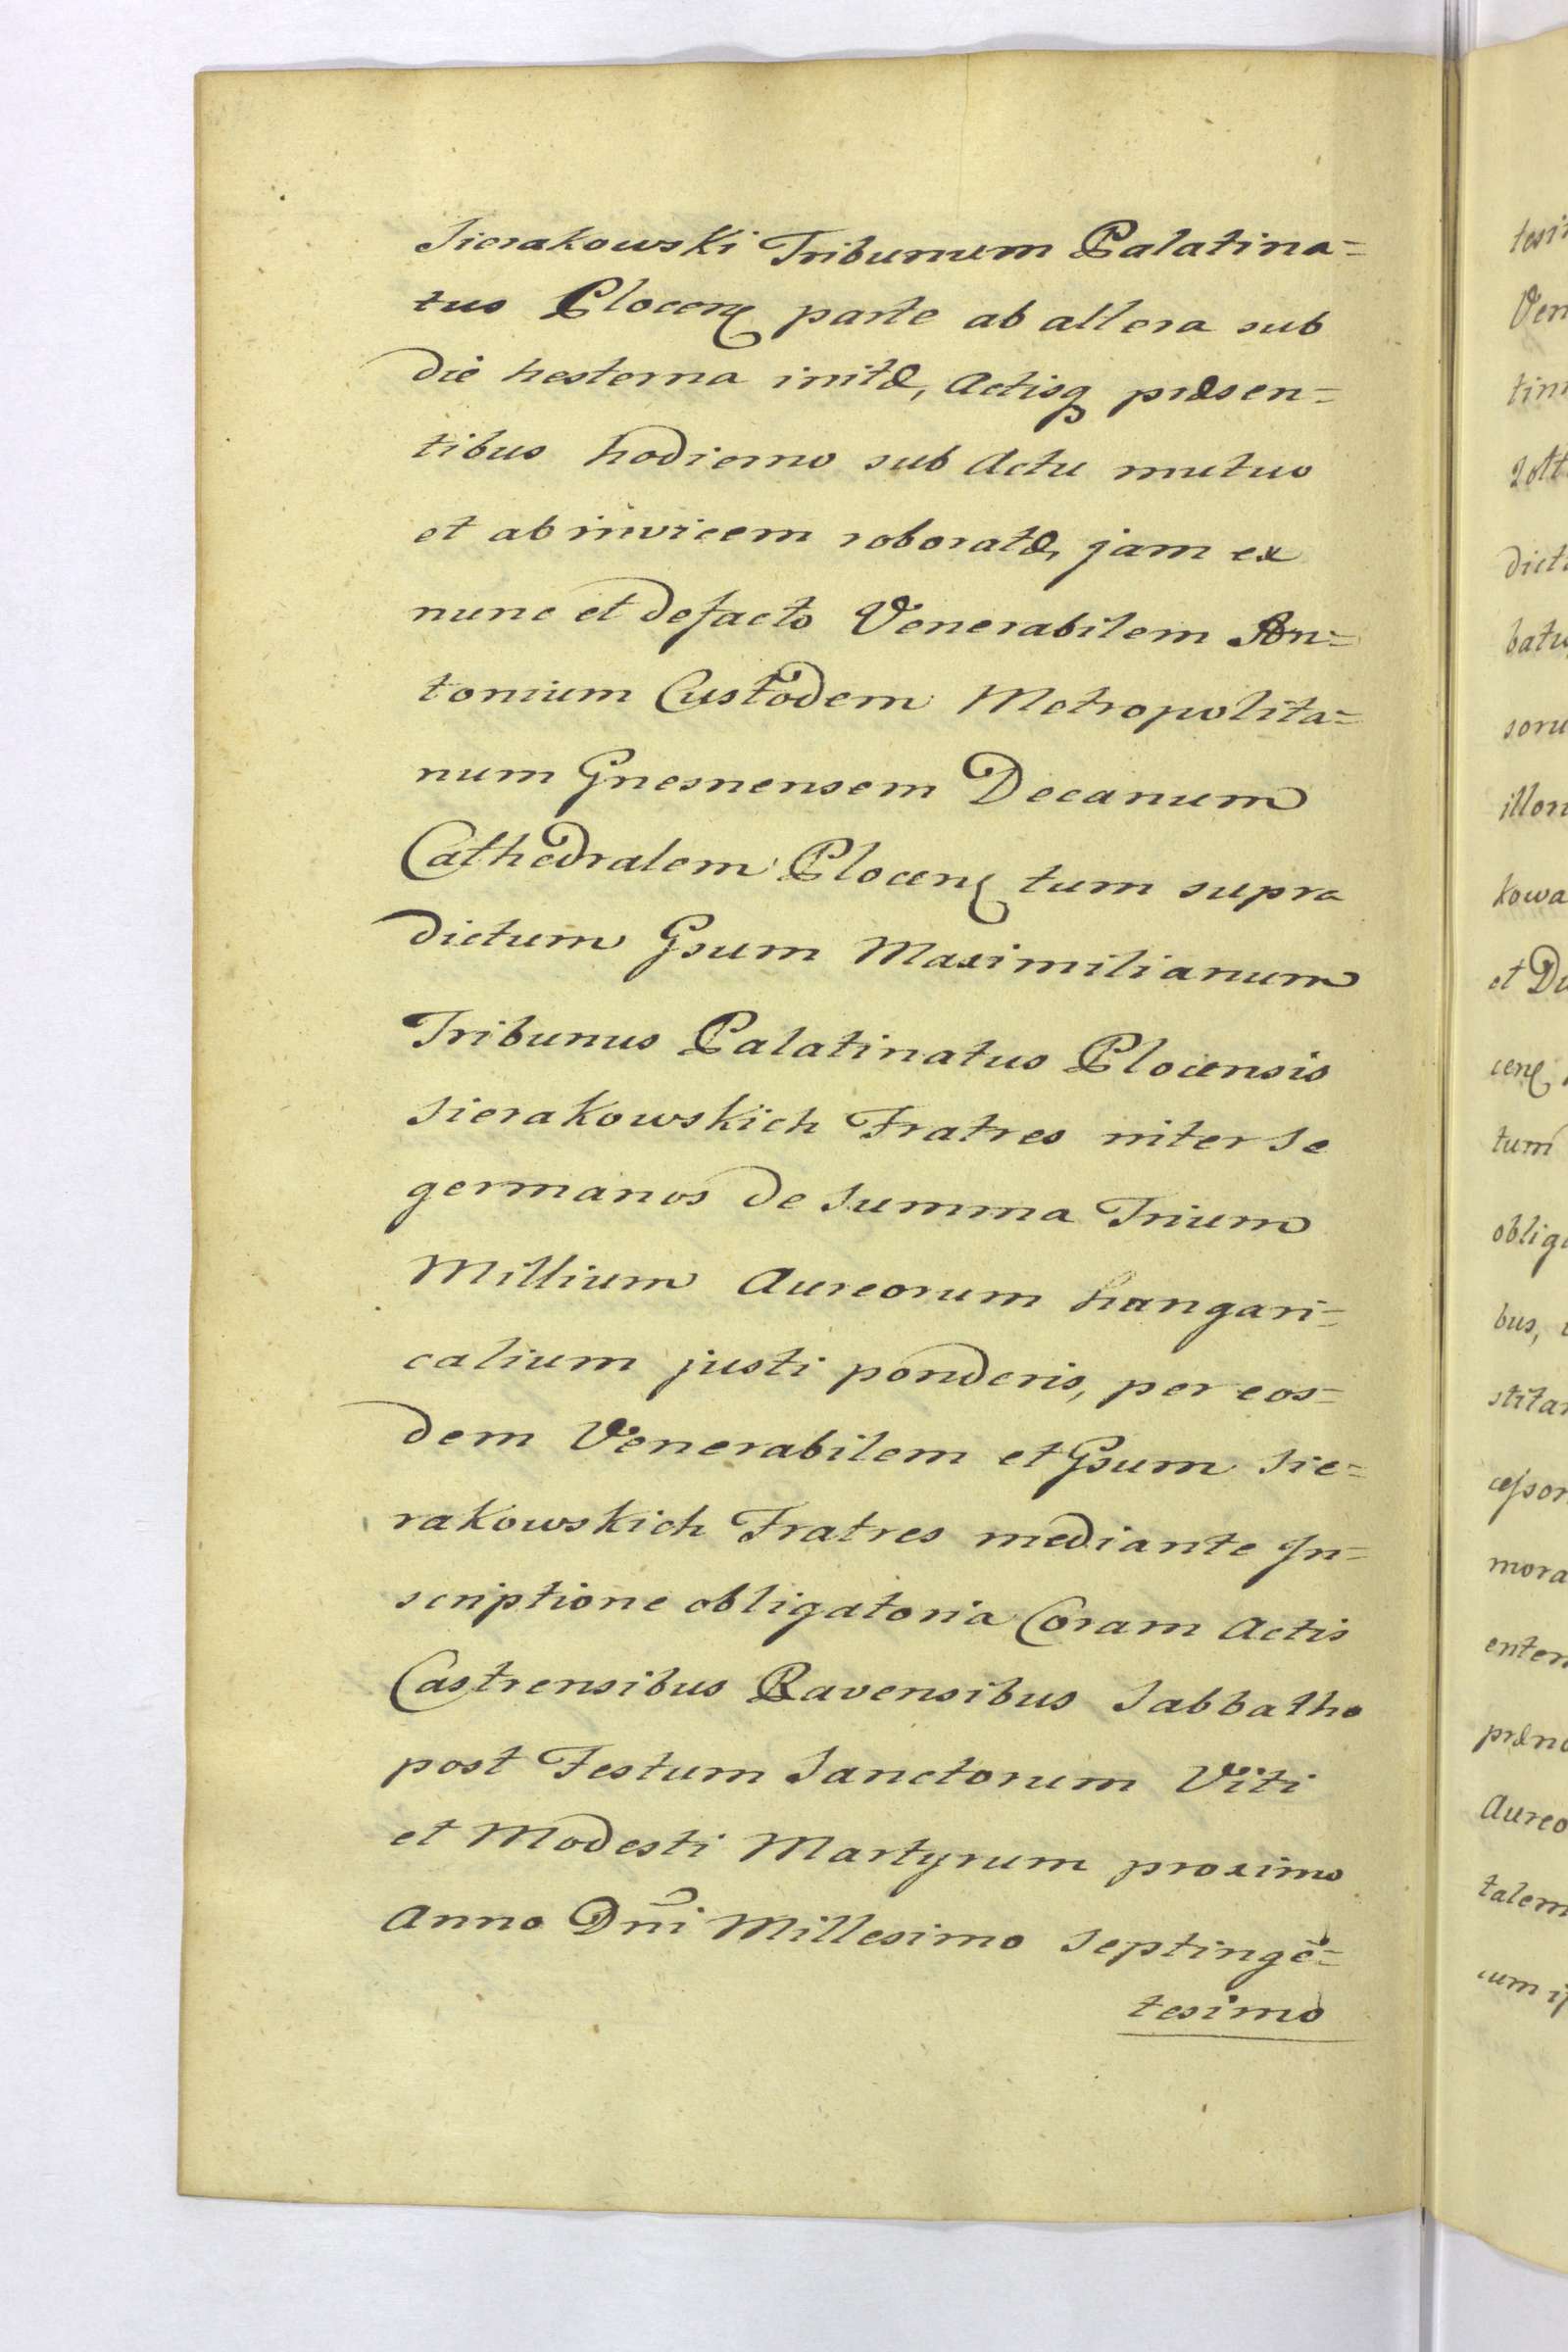 Sierakowski Tribunum Palatina=
tus Plocen parte ab altera sub
die hesterna initæ, Actisq præsen=
tibus hodierno sub Actu mutuo
et ab invicem roboratæ, jam ex
nunc et defacto Venerabilem An=
tonium Custodem Metropolita=
num Gnesnensem Decanum
Cathedralem Plocen tum supra
dictum Gsum Maximilianum
Tribunus Palatinatus Plocensis
Sierakowskich Fratres inter se
germanos de Summa Trium
Millium Aureorum hungari=
calium justi ponderis, per eos=
dem Venerabilem et Gsum Sie=
rakowskich Fratres mediante In=
scriptione obligatoria Coram Actis
Castrensibus Ravensibus Sabbatho
post Festum Sanctorum Viti
et Modesti Martyrum proximo
Anno Dñi Millesimo Septingē=
tesimo